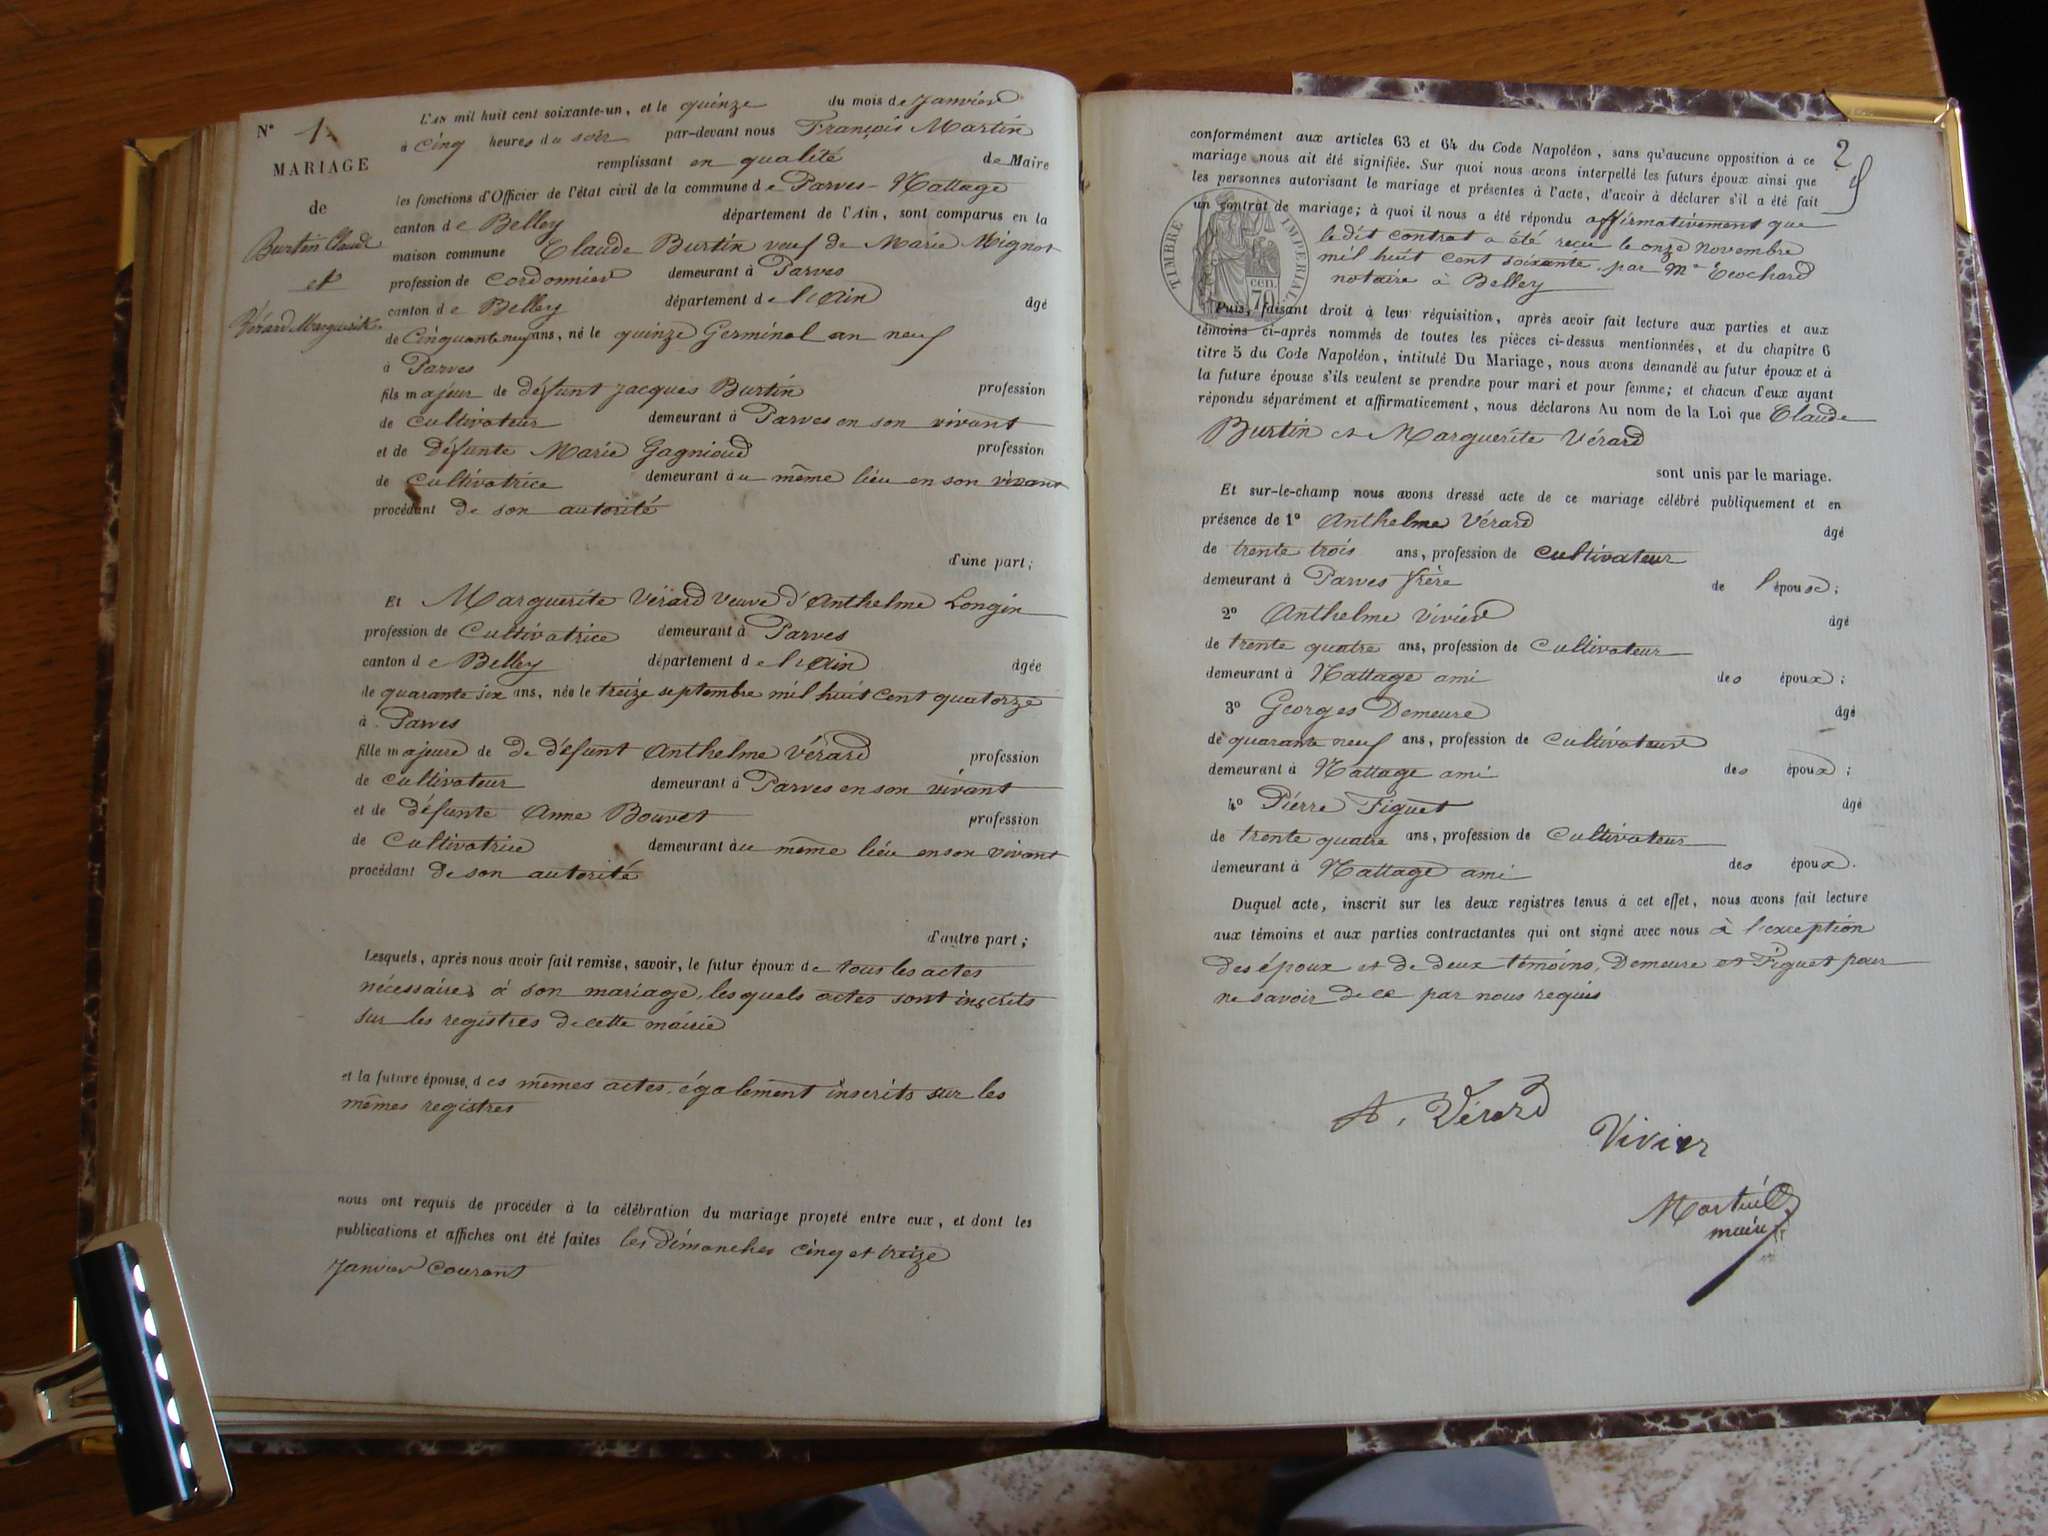 N° 1.
MARIAGE
de
Burtin Claude
et
Vérard Marguerite
L'AN mil huit cent soixante-un, et le quinze du mois de Janvier
à cinq heures du soir par-devant nous François Martin
remplissant en qualité de Maire
les fonctions d'Officier de l'état civil de la commune de Parves-Nattage
canton de Belley département de l'Ain, sont comparus en la
maison commune Claude Burtin veuf de Marie Mignot
profession de cordonnier demeurant à Parves
canton de Belley département de l'Ain âgé
de Cinquante neuf ans, né le quinze Germinal an neuf
à Parves
fils majeur de défunt Jacques Burtin profession
de cultivateur demeurant à Parves en son vivant
et de défunte Marie Gagnioud profession
de cultivatrice demeurant au même lieu en son vivant
procédant de son autorité
d'une part;
Et Marguerite Vérard veuve d'Anthelme Longin
profession de Cultivatrice demeurant à Parves
canton de Belley département de l'Ain âgée
de quarante six ans, née le treize septembre mil huit cent quatorze
à Parves
fille majeure de de défunt Anthelme Vérard profession
de cultivateur demeurant à Parves en son vivant
et de défunte Anne Bouvet profession
de Cultivatrice demeurant au même lieu en son vivant
procédant de son autorité
d'autre part;
Lesquels, après nous avoir fait remise, savoir, le futur époux de tous les actes
nécessaires à son mariage, lesquels actes sont inscrits
sur les registres de cette mairie
et la future épouse, des mêmes actes, également inscrits sur les
mêmes registres
nous ont requis de procéder à la célébration du mariage projeté entre eux, et dont les
publications et affiches ont été faites les dimanches cinq et treize
Janvier courant
2
conformément aux articles 63 et 64 du Code Napoléon, sans qu'aucune opposition à ce
mariage nous ait été signifiée. Sur quoi nous avons interpellé les futurs époux ainsi que
les personnes autorisant le mariage et présentes à l'acte, d'avoir à déclarer s'il a été fait
un contrat de mariage; à quoi il nous a été répondu affirmativement que
le dit contrat a été reçu le onze novembre
mil huit cent soixante par Me Trochard
notaire à Belley
TIMBRE IMPÉRIAL
70 cen.
Puis, faisant droit à leur réquisition, après avoir fait lecture aux parties et aux
témoins ci-après nommés de toutes les pièces ci-dessus mentionnées, et du chapitre 6
titre 5 du Code Napoléon, intitulé Du Mariage, nous avons demandé au futur époux et à
la future épouse s'ils veulent se prendre pour mari et pour femme; et chacun d'eux ayant
répondu séparément et affirmativement, nous déclarons Au nom de la Loi que Claude
Burtin et Marguerite Vérard
sont unis par le mariage.
Et sur-le-champ nous avons dressé acte de ce mariage célébré publiquement et en
présence de 1° Anthelme Vérard âgé
de trente trois ans, profession de cultivateur
demeurant à Parves frère de l'épouse;
2° Anthelme Vivier âgé
de trente quatre ans, profession de cultivateur
demeurant à Nattage ami des époux;
3° Georges Demeure âgé
de quarante neuf ans, profession de cultivateur
demeurant à Nattage ami des époux;
4° Pierre Figuet âgé
de trente quatre ans, profession de Cultivateur
demeurant à Nattage ami des époux.
Duquel acte, inscrit sur les deux registres tenus à cet effet, nous avons fait lecture
aux témoins et aux parties contractantes qui ont signé avec nous à l'exception
des époux et de deux témoins, Demeure et Figuet pour
ne savoir de ce par nous requis
A. Vérard
Vivier
Martin
maire